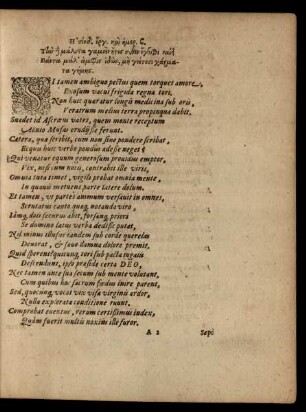 Η σιοδ. ἔργ. καὶ ἡμερ. C.
Τὴν ἢ μάλιστα γαμεῖν ἥτις σέθεν ἐγγύθι ναίει
Πάντα μάλ' ἀμφὶς ἰδὼν, μὴ γείτοσι χάρμα-
τα γήμης.
SI tamen ambiguo pectus quem torquet amore,
Exosum vacui frigida regna tori,
Non huic quæratur longis medicina sub oris,
Veratrum medius terra propinqua dabit.
Suadet id Ascræus vates, quem monte receptum
Aonio Musas erudijsse ferunt.
Cetera, quæ scribit, cum non sine pondere scribat,
Ecquis huic verbo pondus adesse neget?
Qui venatur equum generosum providus emptor,
Vix, nisi cum notis, contrahit ille viris,
Omnia tuta timet, vigili probat omnia mente,
In quavis metuens parte latere dolum.
Et tamen, ut partes animum versavit in omnes,
Scrutatus cauta quæq; notanda viro,
Limo, dois securus abit, forsanq; prioris
Se domino latus verba dedisse putat,
Nil minus illusus tandem sub corde querelam
Devorat, & sævo damna dolore premit.
Quid sperent quisunq; tori sub pacta iugalis
Destribunt, ipso præside certa DEO,
Nec tamen ante sua secum sub mente volutant,
Cum quibus hac sacrum fœdus inire parent,
Sed, quocunq; vocat vox visa virginis ardor,
Nulla explorata conditione ruunt.
Comprobat eventus, rerum certissimus index,
Quàm fuerit multis noxius ille furor.
A 2 Sæpè